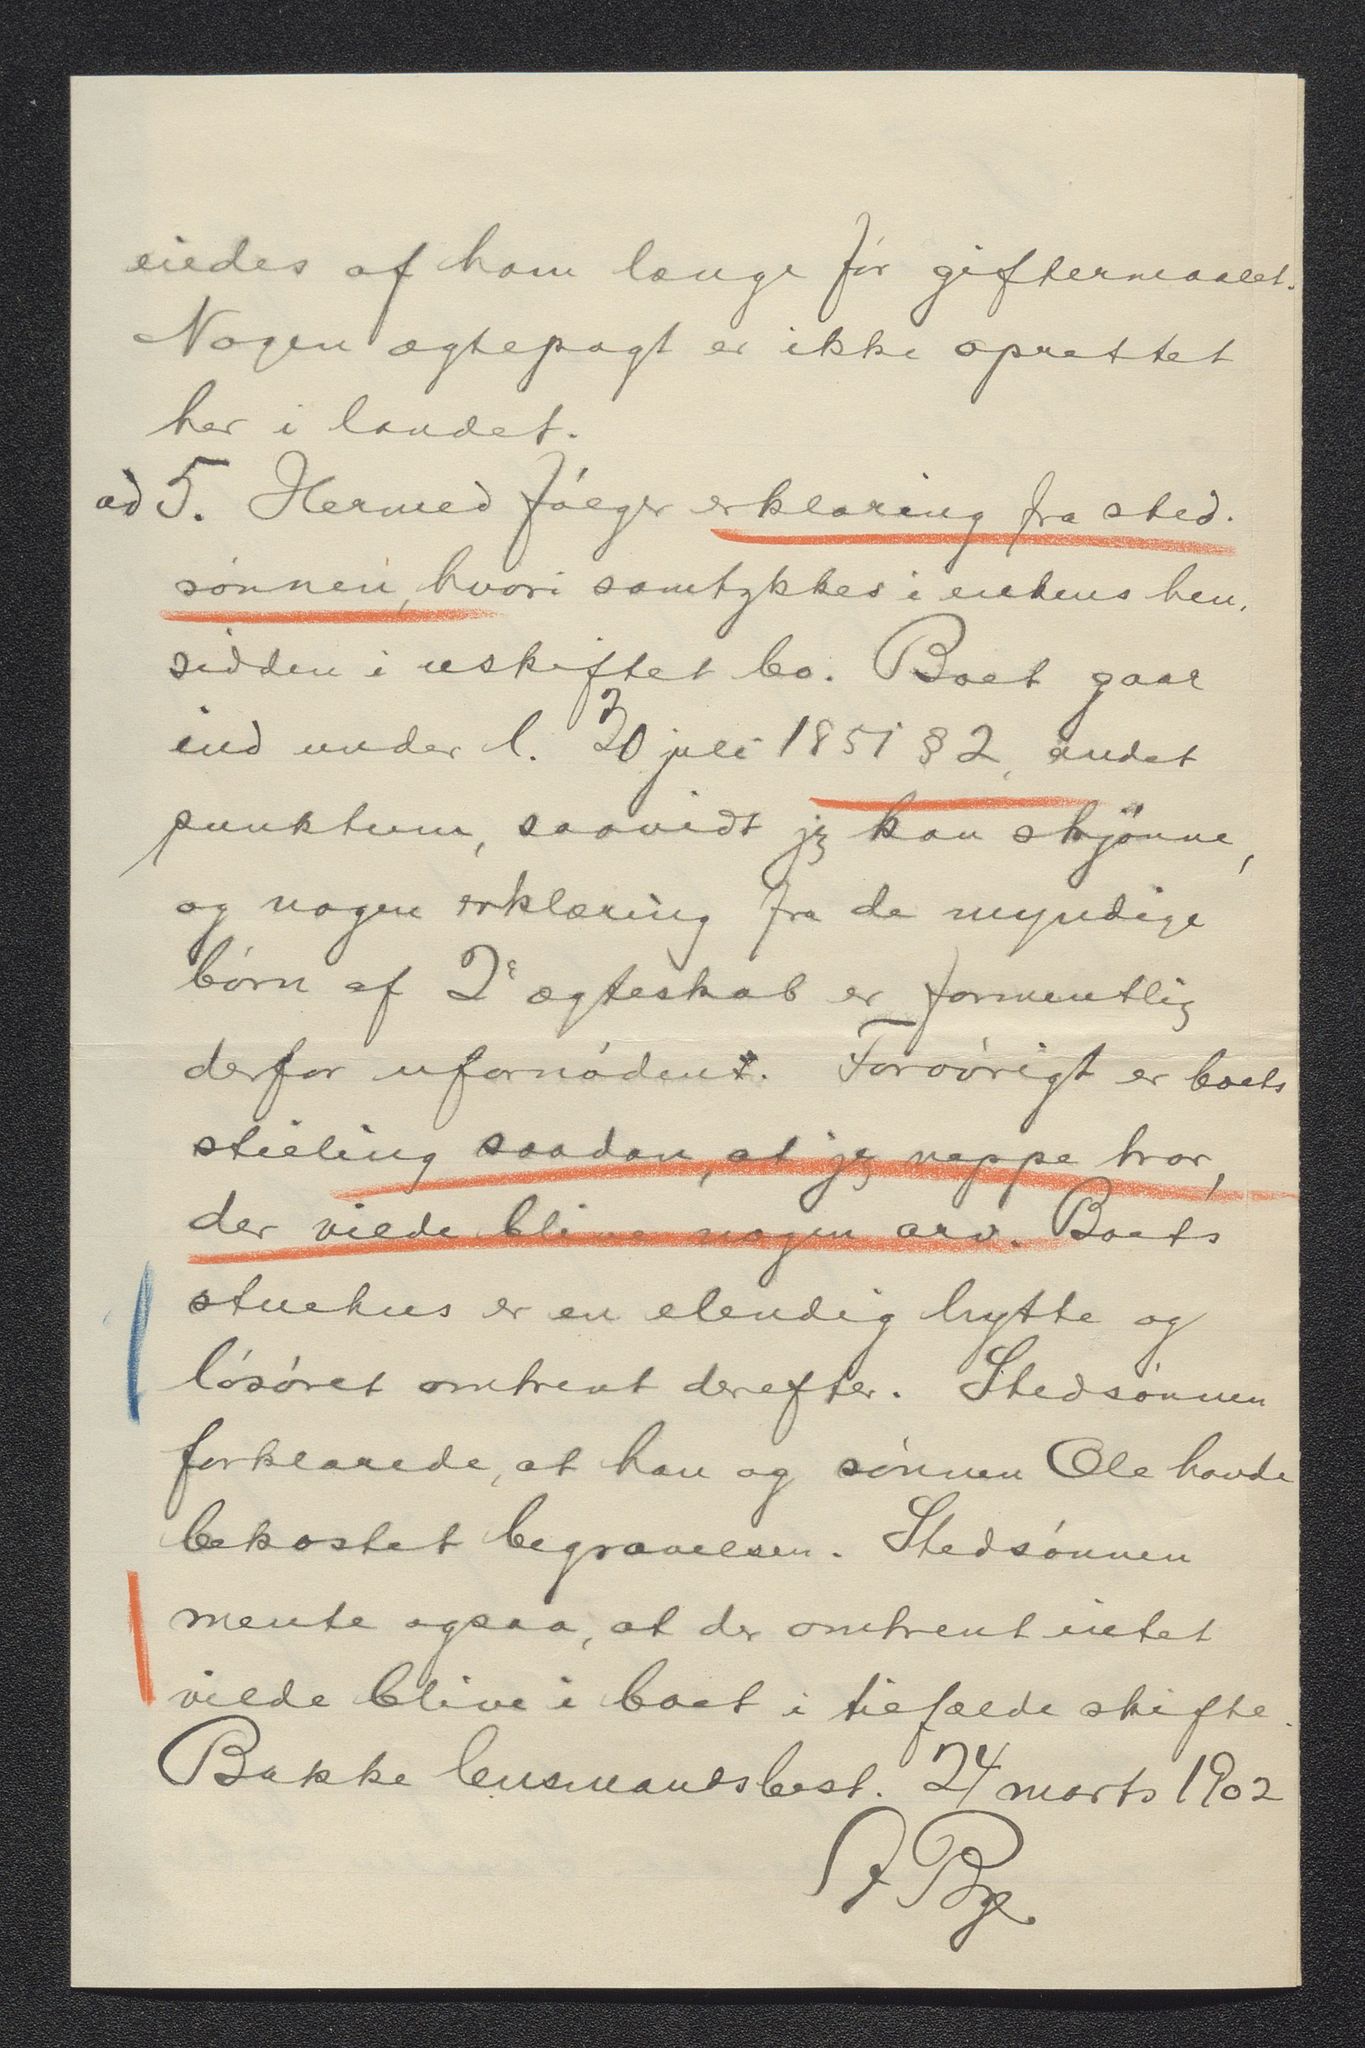 eiedes af ham længe før giftermaalet.
Nogen ægtepagt er ikke oprettet
her i landet.
ad 5. Hermed følger erklæring fra sted-
sønnen, hvori samtykkes i enkens hen-
sidden i uskiftet bo. Boet gaar
ind under l. 30 juli 1851 § 2, andet
punktum, saavidt jeg kan skjønne,
og nogen erklæring fra de myndige
børn af 2' ægteskab er formentlig
derfor ufornøden. Forøvrigt er boets
stilling saadan, at jeg neppe tror,
der vilde blive nogen arv. Boets
stuehus er en elendig hytte og
løsøret omtrent derefter. Stedsønnen
forklarede, at han og sønnen Ole havde
bekostet begravelsen. Stedsønnen
mente ogsaa, at der omtrent intet
vilde blive i boet i tilfælde skifte.
Bakke lensmandsbest. 24 marts 1902
Bye